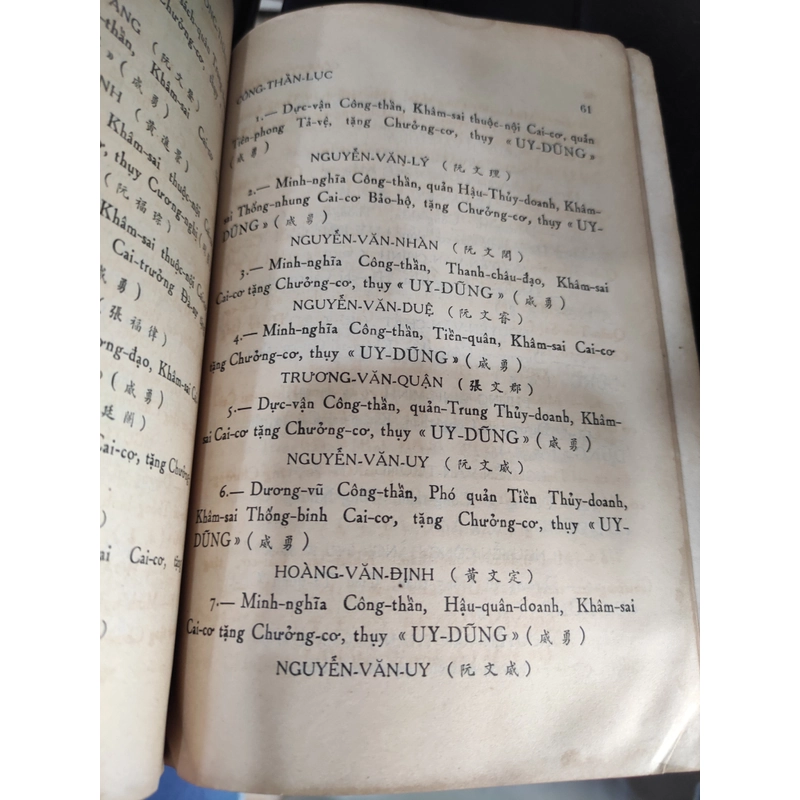 ANG (阮文
Khâm-sai
» (威勇)
NH (黃進
sai thuộc-nội
thụy Cương-nghị
(阮福
Khâm-sai thuộc-nội Cai-cơ
Cai-trưởng
威勇)
張福律)
ng-đạo, Khâm-sai
» (威勇)
廷閑)
Cai-cơ, tặng Chưởng
勇)
Cai-cơ,
CÔNG-THẦN-LỤC
61
1.— Dực-vận Công-thần, Khâm-sai thuộc-nội Cai-cơ, quản
Tiền-phong Tả-vệ, tặng Chưởng-cơ, thụy « UY-DŨNG »
(威勇)
NGUYỄN-VĂN-LÝ (阮文理)
2.— Minh-nghĩa Công-thần, quản Hậu-Thủy-doanh, Khâm-
sai Thống-nhung Cai-cơ Bảo-hộ, tặng Chưởng-cơ, thụy « UY-
DŨNG » (威勇)
NGUYỄN-VĂN-NHÀN (阮文閑)
3.— Minh-nghĩa Công-thần, Thanh-châu-đạo, Khâm-sai
Cai-cơ tặng Chưởng-cơ, thụy « UY-DŨNG » (威勇)
NGUYỄN-VĂN-DUỆ (阮文睿)
4.— Minh-nghĩa Công-thần, Tiền-quân, Khâm-sai Cai-cơ
tặng Chưởng-cơ, thụy « UY-DŨNG » (威勇)
TRƯƠNG-VĂN-QUẬN (張文郡)
5.— Dực-vận Công-thần, quản-Trung Thủy-doanh, Khâm-
sai Cai-cơ tặng Chưởng-cơ, thụy « UY-DŨNG » (威勇)
NGUYỄN-VĂN-UY (阮文威)
6.— Dương-vũ Công-thần, Phó quản Tiền Thủy-doanh,
Khâm-sai Thống-binh Cai-cơ, tặng Chưởng-cơ, thụy « UY-
DŨNG » (威勇)
HOÀNG-VĂN-ĐỊNH (黃文定)
7.— Minh-nghĩa Công-thần, Hậu-quân-doanh, Khâm-sai
Cai-cơ tặng Chưởng-cơ, thụy « UY-DŨNG » (威勇)
NGUYỄN-VĂN-UY (阮文威)